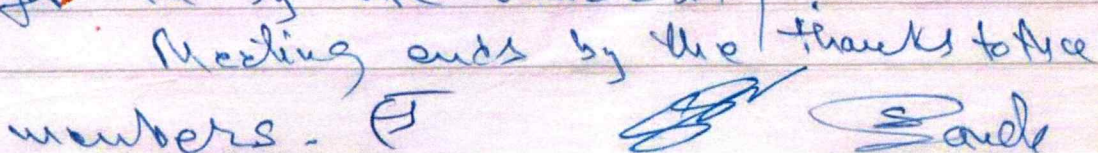 Meeting ends by the thanks to the
members.